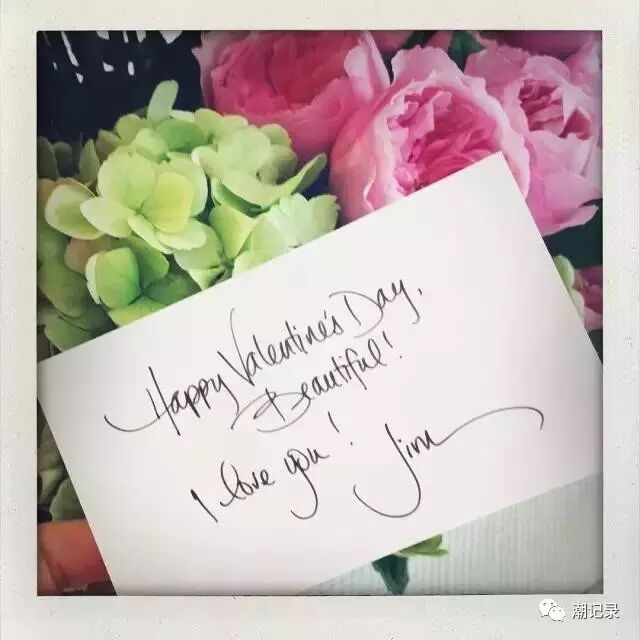 Happy Valentine's Day,
Beautiful!
I love you! Jim
潮记录